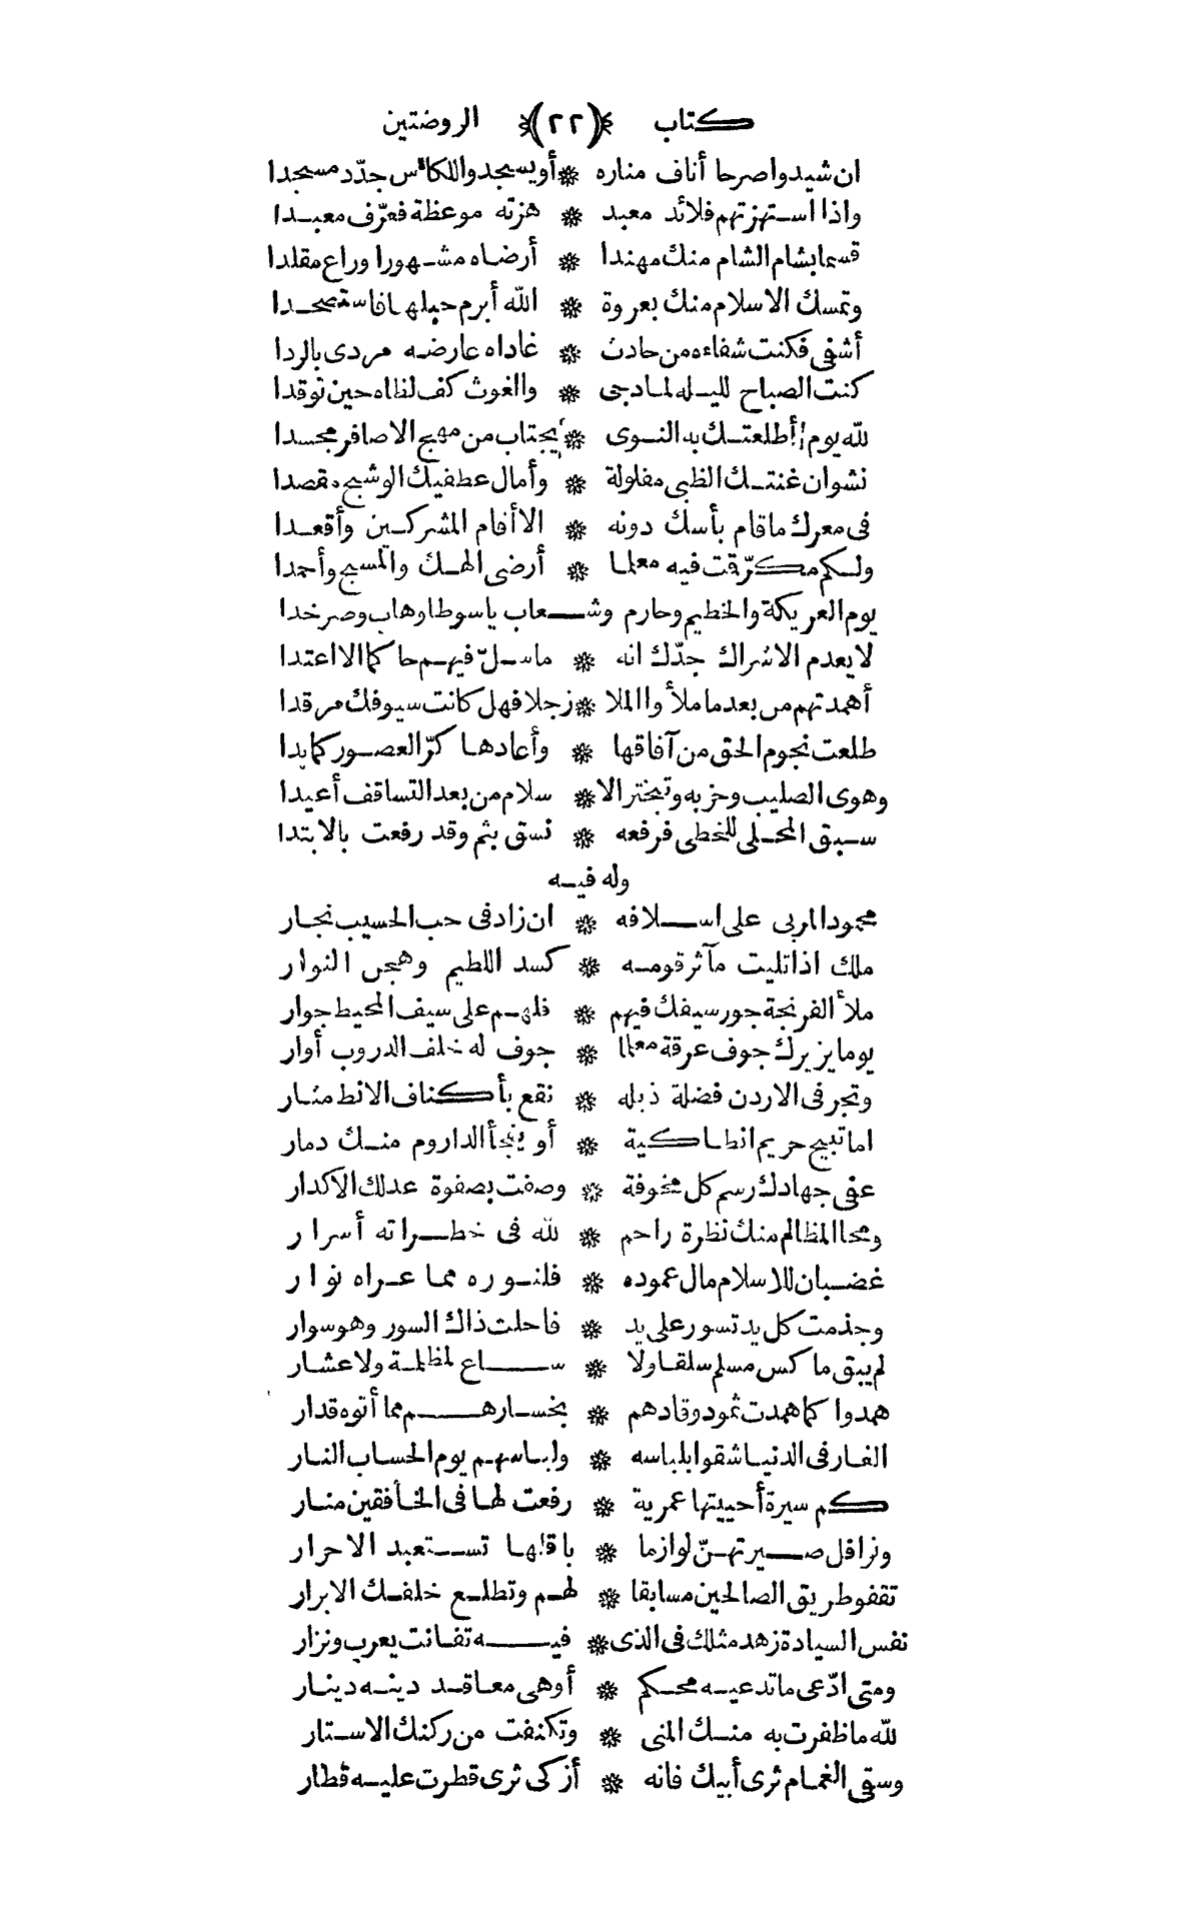 كتاب ﴿٢٢﴾ الروضتين
ان شيدوا صرحا أناف مناره * أو يسجدوا للكاس جدّد مسجدا
واذا استهزتهم قلائد معبد * هزته موعظة فعرّف معبدا
قسما بشام الشام منك مهندا * أرضاه مشهورا وراع مقلدا
وتمسك الاسلام منك بعروة * الله أبرم حبلها فاستحصدا
أشفى فكنت شفاءه من حادث * غاداه عارضه مردى بالردا
كنت الصباح لليله لما دجى * والغوث كف لظاه حين توقدا
لله يوم أطلعتك به النوى * يجتاب من مهج الاصافر مجسدا
نشوان غنتك الظبى مفلولة * وأمال عطفيك الوشيج مقصدا
فى معرك ما قام بأسك دونه * الا أقام المشركين وأقعدا
ولكم مكرّ قمت فيه معلما * أرضى الهك والمسيح وأحمدا
يوم العريكة والخطيم وحارم وشعاب ياسوطا وهاب وصرخدا
لا يعدم الاشراك جدّك انه * ما سلّ فيهم حاكما الا اعتدا
أهمدتهم من بعد ما ملأوا الملا * زجلا فهل كانت سيوفك مرقدا
طلعت نجوم الحق من آفاقها * وأعادها كرّ العصور كما بدا
وهوى الصليب وحزبه وتبختر الا * سلام من بعد التساقف أعيدا
سبق المحلى للخطى فرفعه * نسق بثم وقد رفعت بالابتدا
وله فيه
محمود المربى على اسلافه * ان زاد فى حب الحسيب نجار
ملك اذا تليت مآثر قومه * كسد اللطيم وهجن النوار
ملأ الفرنجة جور سيفك فيهم * فلهم على سيف المحيط جوار
يوما يزيرك جوف عرقة معلما * جوف له خلف الدروب أوار
وتجر فى الاردن فضلة ذبله * نقع بأكناف الانط مثار
اما تبيح حريم انطاكية * أو يفجأ الداروم منك دمار
عفى جهادك رسم كل مخوفة * وصفت بصفوة عدلك الاكدار
ومحا المظالم منك نظرة راحم * لله فى خطراته أسرار
غضبان للاسلام مال عموده * فلنوره مما عراه نوار
وجذمت كل يد تسور على يد * فاحلت ذاك السور وهو سوار
لم يبق ماكس مسلم سلقا ولا * ساع لمظلمة ولا عشار
همدوا كما همدت ثمود وقادهم * بخسارهم مما أتوه قدار
العار فى الدنيا شقوا بلباسه * ولباسهم يوم الحساب النار
كم سيرة أحييتها عمرية * رفعت لها فى الخافقين منار
ونوافل صيرتهنّ لوازما * باقلها تستعبد الاحرار
تقفو طريق الصالحين مسابقا * لهم وتطلع خلفك الابرار
نفس السيادة زهد مثلك فى الذى * فيه تفانت يعرب ونزار
ومتى ادّعى ما تدعيه محكم * أو هى معاقد دينه دينار
لله ما ظفرت به منك المنى * وتكنفت من ركنك الاستار
وسقى الغمام ثرى أبيك فانه * أزكى ثرى قطرت عليه قطار